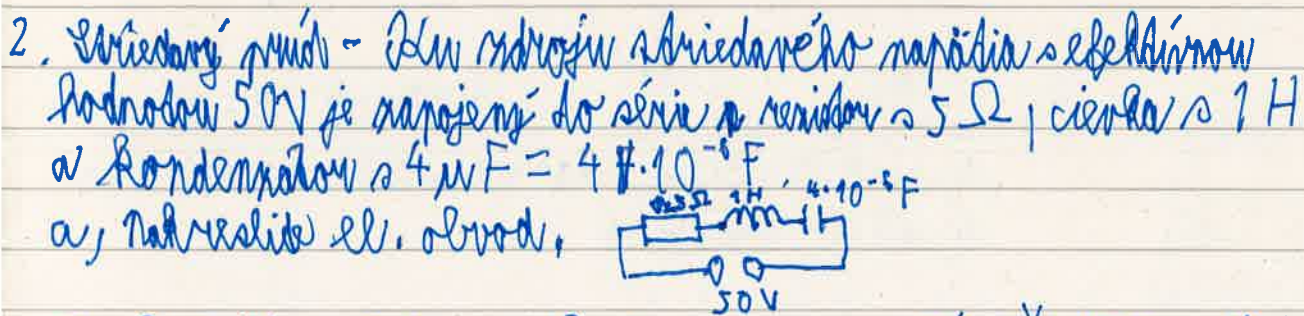 2. Striedavý prúd - Ku zdroju striedavého napätia s efektívnou
hodnotou 50V je zapojený do série rezistor s 5 Ω, cievka s 1 H
a kondenzátor s 4 μF = 4 · 10⁻⁶ F
5Ω 1H 4·10⁻⁶ F
a, Nakreslite el. obvod.
50V